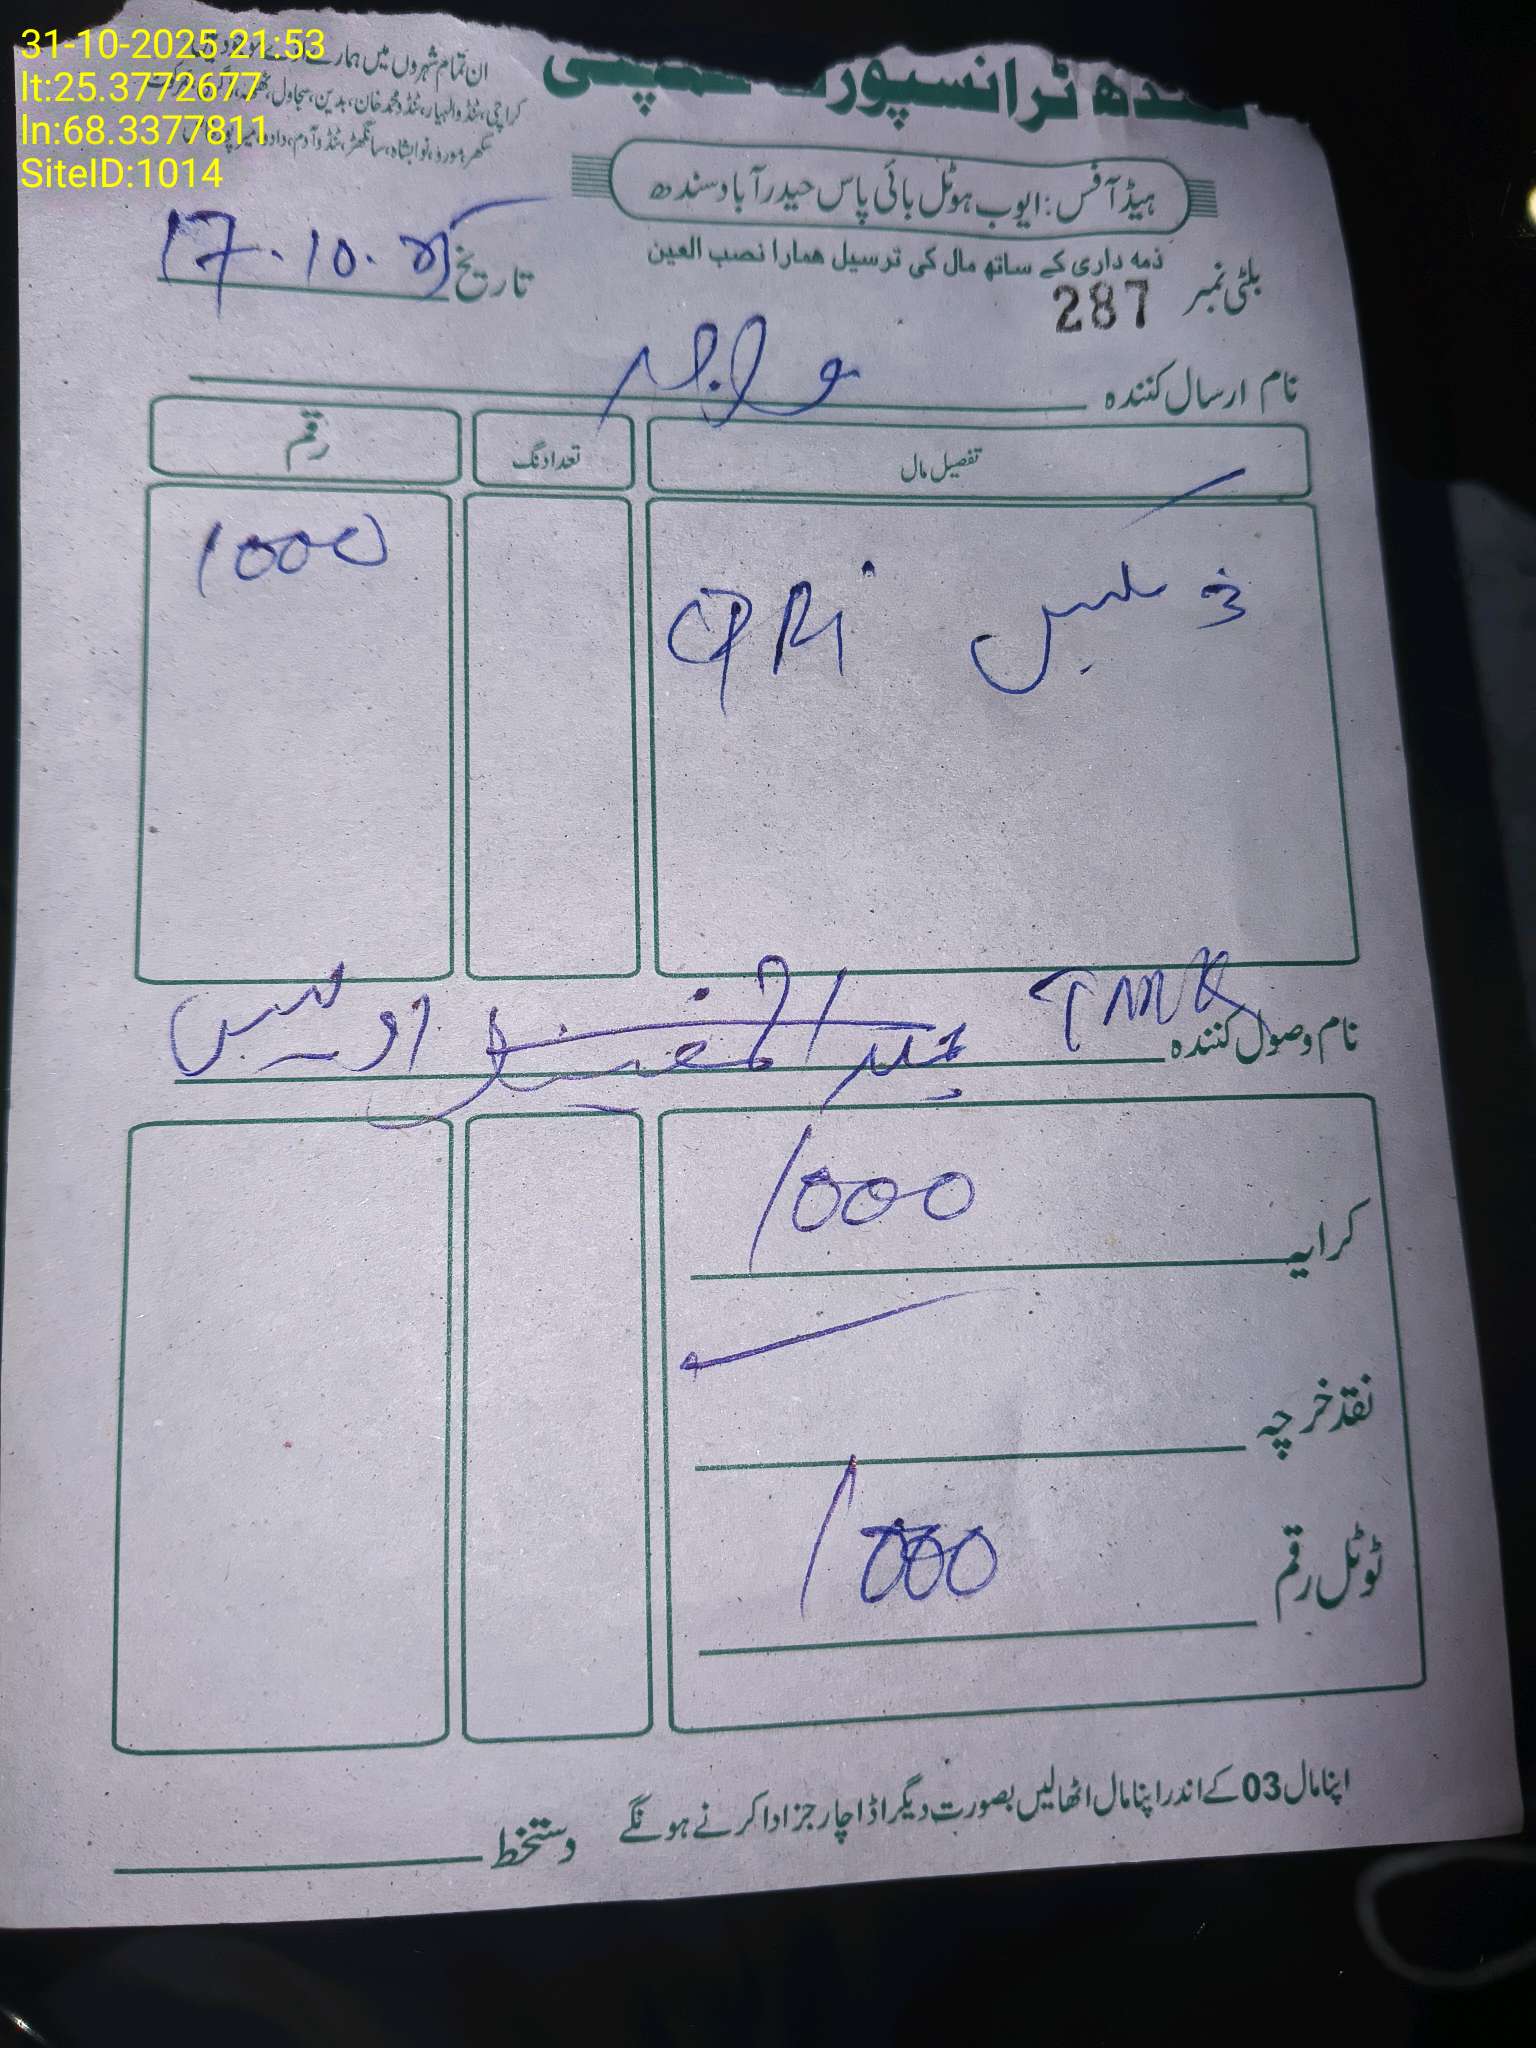 31-10-2025 21:53
lt:25.3772677
ln:68.3377811
SiteID:1014
ان تمام شہروں میں ہمارے
کراچی، ٹنڈوالہیار، ٹنڈو محمد خان، بدین، سجاول،
سکھر، مورو، نوابشاہ، سانگھڑ، ٹنڈو آدم، دادو،
سندھ ٹرانسپورٹ کمپنی
ہیڈ آفس: ایوب ہوٹل بائی پاس حیدرآباد سندھ
ذمہ داری کے ساتھ مال کی ترسیل ہمارا نصب العین
بلٹی نمبر 287
تاریخ 17.10.25
نام ارسال کنندہ
تفصیل مال تعداد نگ رقم
1000
نام وصول کنندہ TMK اویس
کرایہ 1000
نقد خرچہ
ٹوٹل رقم 1000
اپنا مال 03 کے اندر اپنا مال اٹھالیں بصورت دیگر اڈا چارجز ادا کرنے ہونگے
دستخط